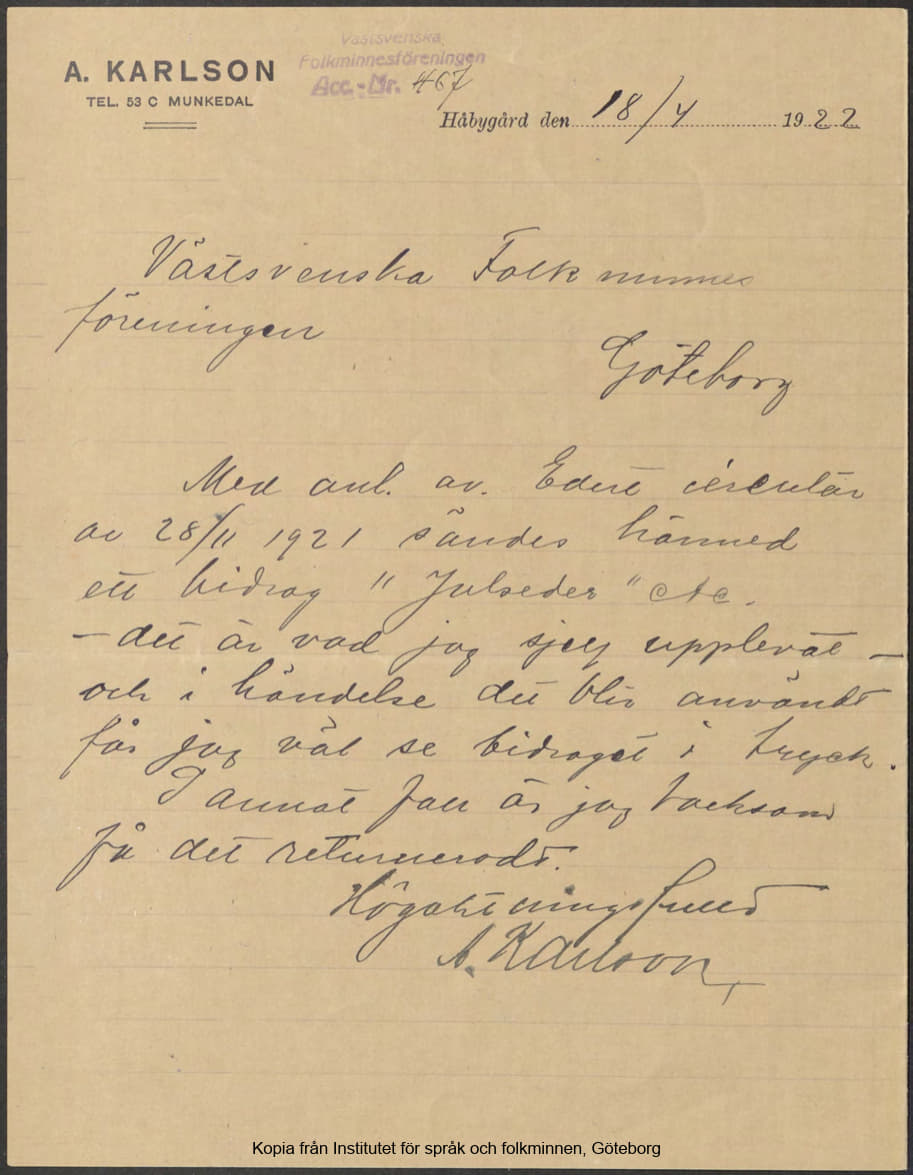 Västsvenska
Folkminnesföreningen
Acc.-Nr. 467
A. KARLSON
TEL. 53 C MUNKEDAL
Håbygård den 18/4 1922
Västsvenska Folkminnes
föreningen
Göteborg
Med anl. av. Edert circulär
av 28/11 1921 sändes härmed
ett bidrag "Julseder" etc.
– det är vad jag sjelf upplevat –
och i händelse det blir användt
får jag väl se bidraget i tryck.
I annat fall är jag tacksam
få det returneradt.
Högaktningsfullt
A. Karlson
Kopia från Institutet för språk och folkminnen, Göteborg